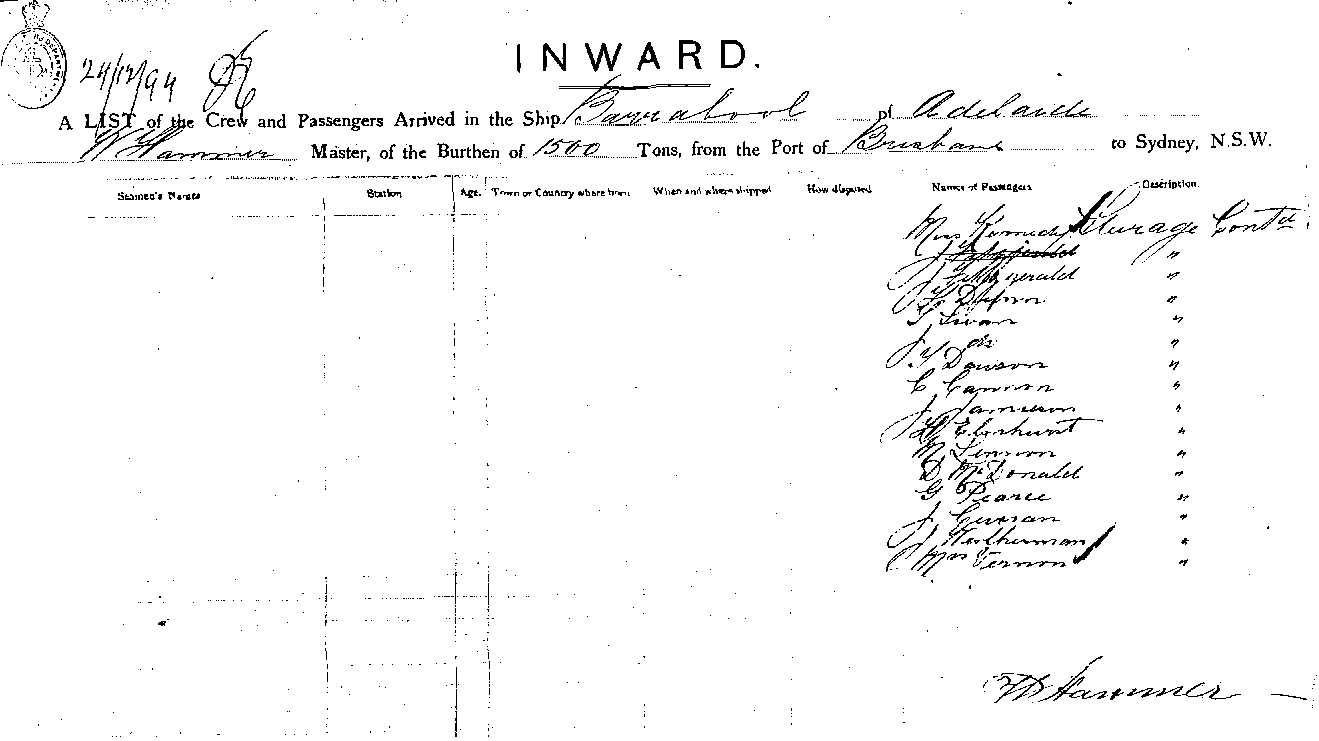 INWARD.
24/12/94
A LIST of the Crew and Passengers Arrived in the Ship Barrabool of Adelaide
W Hammer Master, of the Burthen of 1500 Tons, from the Port of Brisbane to Sydney, N.S.W.
Seamen's Names Station Age. Town or Country where born When and where shipped How disposed Names of Passengers Description.
Miss Kennedy Steerage Contd
"
J Fitzgerald "
"
T Swan "
"
T Dawson "
C Cannon "
J Jamieson "
"
M "
D McDonald "
G Pearce "
J Curran "
J "
Mrs Vernon "
W Hammer